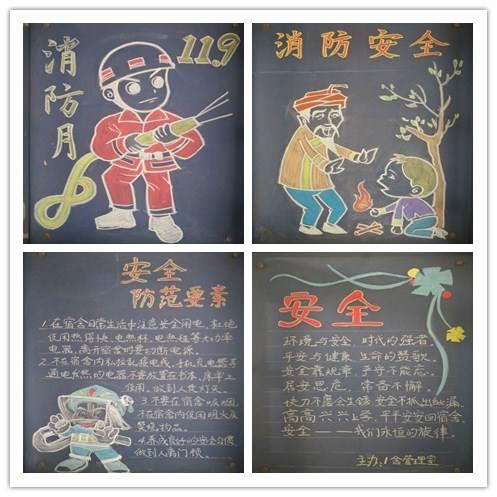 消防月
119
消防安全
安全
防范要素
1.在宿舍日常生活中注意安全用电,杜绝
使用热得快、电热杯、电热毯等大功率
电器,离开宿舍时要切断电源。
2.不在宿舍内私拉乱接电线,
通电发热的电器不要放置在书本、床单上
使用,做到人走灯灭。
3.不要在宿舍吸烟
不在宿舍内使用明火及
焚烧物品。
4.养成良好的安全习惯
做到人离门锁。
安全
环境与安全,时代的强音。
平安与健康,生命的赞歌。
安全靠规章,字字不能忘。
居安思危,常备不懈。
快刀不磨会生锈,安全不抓出纰漏。
高高兴兴上学,平平安安回宿舍,
安全——我们永恒的旋律。
主办:1舍管理室